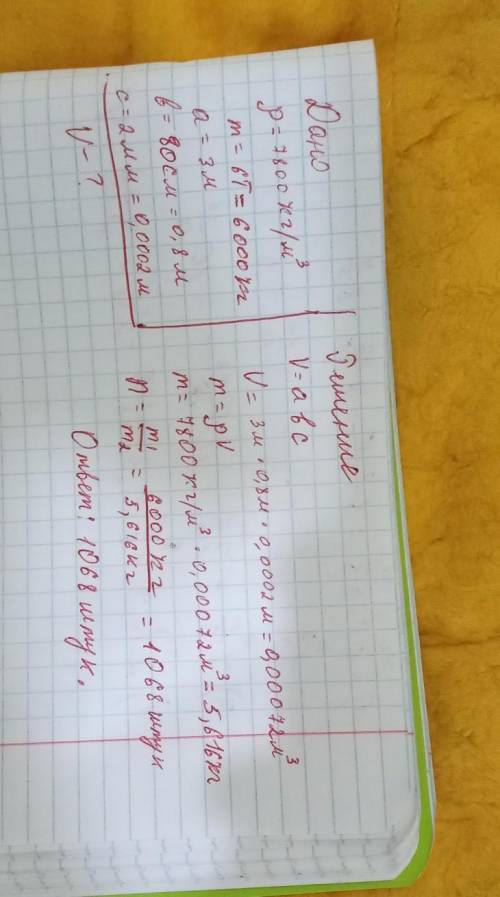 Дано
p = 7800 кг/м³
m = 6т = 6000 кг
a = 3м
b = 80см = 0,8м
c = 2мм = 0,0002м
V - ?
Решение
V = a b c
V = 3м · 0,8м · 0,0002м = 0,00072м³
m = pV
m = 7800 кг/м³ · 0,00072м³ = 5,616кг
n = m₁/m₂ = 6000кг/5,616кг = 1068 штук
Ответ: 1068 штук.